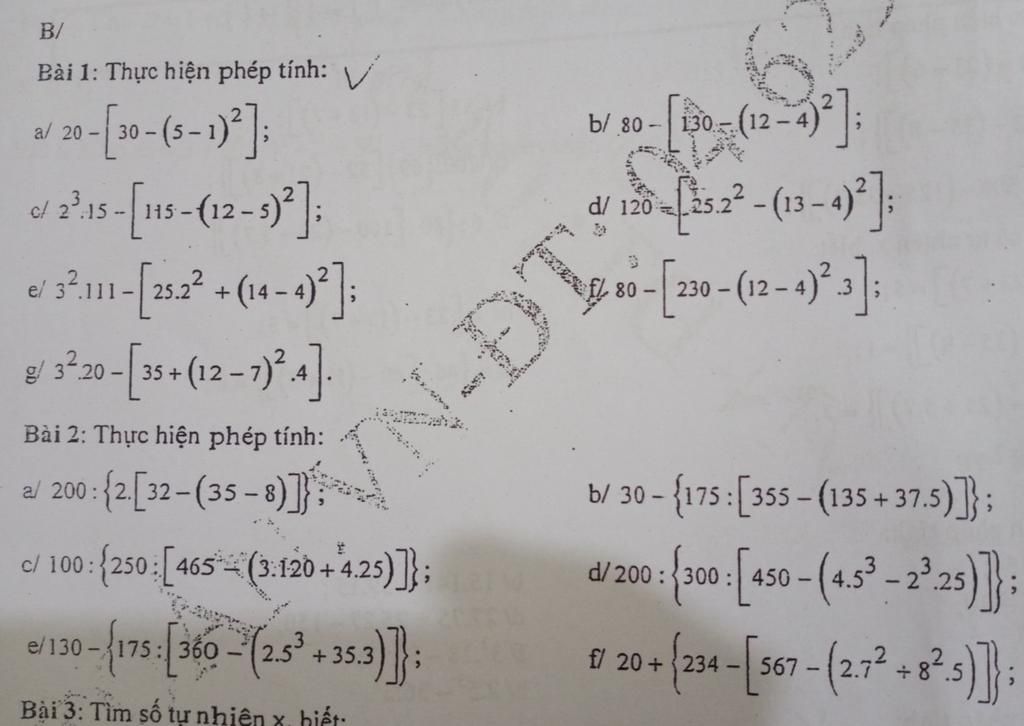 B/
Bài 1: Thực hiện phép tính:
a/ 20 − [30 − (5 − 1)²];
b/ 80 − [130 − (12 − 4)²];
c/ 2³.15 − [115 − (12 − 5)²];
d/ 120 − [25.2² − (13 − 4)²];
e/ 3².111 − [25.2² + (14 − 4)²];
f/ 80 − [230 − (12 − 4)².3];
g/ 3².20 − [35 + (12 − 7)².4].
Bài 2: Thực hiện phép tính:
a/ 200 : {2.[32 − (35 − 8)]};
b/ 30 − {175 : [355 − (135 + 37.5)]};
c/ 100 : {250 : [465 − (3.120 + 4.25)]};
d/ 200 : {300 : [450 − (4.5³ − 2³.25)]};
e/ 130 − {175 : [360 − (2.5³ + 35.3)]};
f/ 20 + {234 − [567 − (2.7² ÷ 8².5)]};
Bài 3: Tìm số tự nhiên x, biết:
VN-ĐT: 04 62